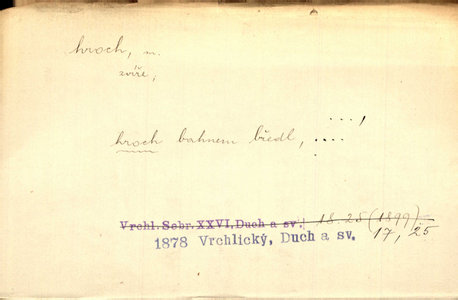 hroch, m.
zvíře;
...,
hroch bahnem bředl, ....
Vrchl. Sebr. XXVI. Duch a sv. 18. 28 (1899)
1878 Vrchlický, Duch a sv. 17, 25